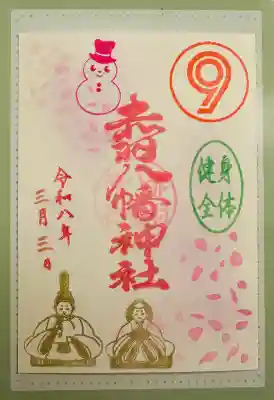 ⑨
赤羽八幡神社
健身
全体
令和八年
三月三日